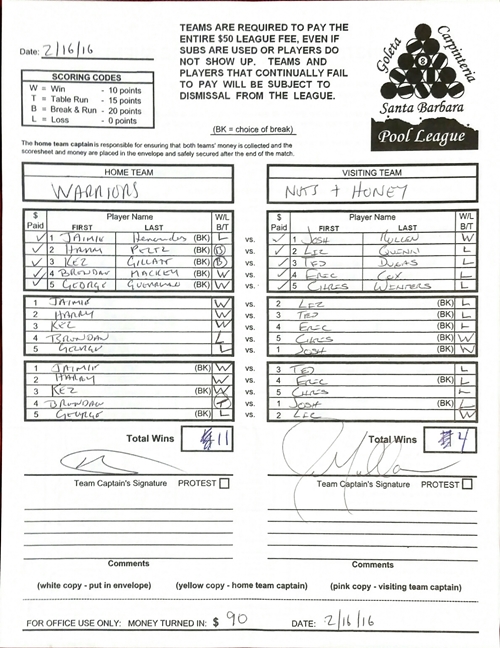 Date: 2/16/16
TEAMS ARE REQUIRED TO PAY THE
ENTIRE $50 LEAGUE FEE, EVEN IF
SUBS ARE USED OR PLAYERS DO
NOT SHOW UP. TEAMS AND
PLAYERS THAT CONTINUALLY FAIL
TO PAY WILL BE SUBJECT TO
DISMISSAL FROM THE LEAGUE.
(BK = choice of break)
Goleta Carpinteria
8
Santa Barbara
Pool League
SCORING CODES
W = Win - 10 points
T = Table Run - 15 points
B = Break & Run - 20 points
L = Loss - 0 points
The home team captain is responsible for ensuring that both teams' money is collected and the
scoresheet and money are placed in the envelope and safely secured after the end of the match.
HOME TEAM VISITING TEAM
WARRIORS NUTS + HONEY
$ Paid Player Name FIRST LAST W/L B/T $ Paid Player Name FIRST LAST W/L B/T
1 JAIMIE (BK) L vs. 1 JOSH W
2 HARRY PELTZ (BK) B vs. 2 LIZ L
3 KEZ (BK) B vs. 3 TED L
4 BRONDAN MACKEY (BK) W vs. 4 ERIC COX L
5 GEORGE (BK) W vs. 5 CHRIS WINTERS L
1 JAIMIE W vs. 2 LIZ (BK) L
2 HARRY W vs. 3 TED (BK) L
3 KEZ W vs. 4 ERIC (BK) L
4 BRONDAN L vs. 5 CHRIS (BK) W
5 GEORGE L vs. 1 JOSH (BK) W
1 JAIMIE (BK) W vs. 3 TED L
2 HARRY W vs. 4 ERIC (BK) L
3 KEZ (BK) W vs. 5 CHRIS L
4 BRONDAN vs. 1 JOSH (BK) L
5 GEORGE (BK) L vs. 2 LIZ W
Total Wins 11 Total Wins 4
Team Captain's Signature PROTEST Team Captain's Signature PROTEST
Comments Comments
(white copy - put in envelope) (yellow copy - home team captain) (pink copy - visiting team captain)
FOR OFFICE USE ONLY: MONEY TURNED IN: $ 90 DATE: 2/16/16